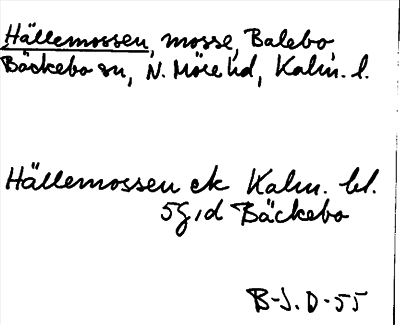 Hällemossen, mosse, Balebo,
Bäckebo sn, N. Möre hd, Kalm. l.
Hällemossen ek Kalm. bl.
5G,d Bäckebo
B-J.D-55